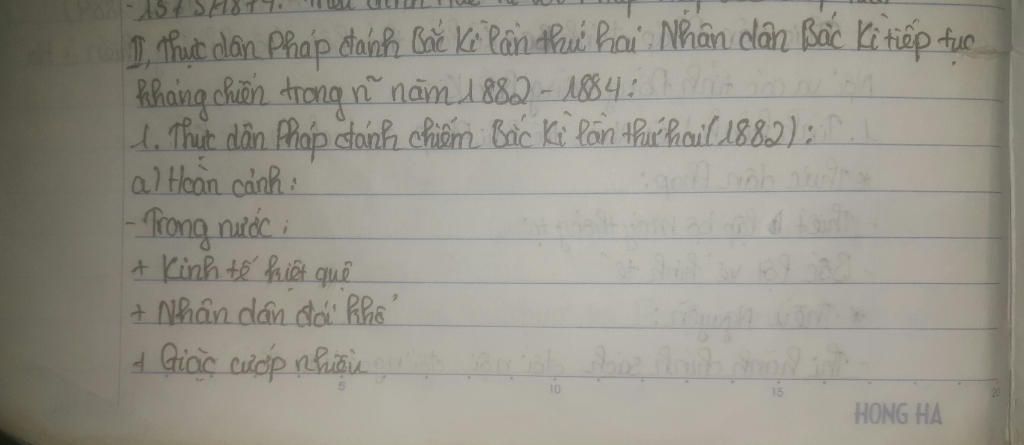 - 15/3/1874:
II, Thực dân Pháp đánh Bắc Kì lần thứ hai. Nhân dân Bắc Kì tiếp tục
kháng chiến trong n~ năm 1882 - 1884:
1. Thực dân Pháp đánh chiếm Bắc Kì lần thứ hai (1882):
a) Hoàn cảnh:
- Trong nước:
+ Kinh tế kiệt quệ
+ Nhân dân đói khổ
+ Giặc cướp nhiều
5 10 15 20
HONG HA